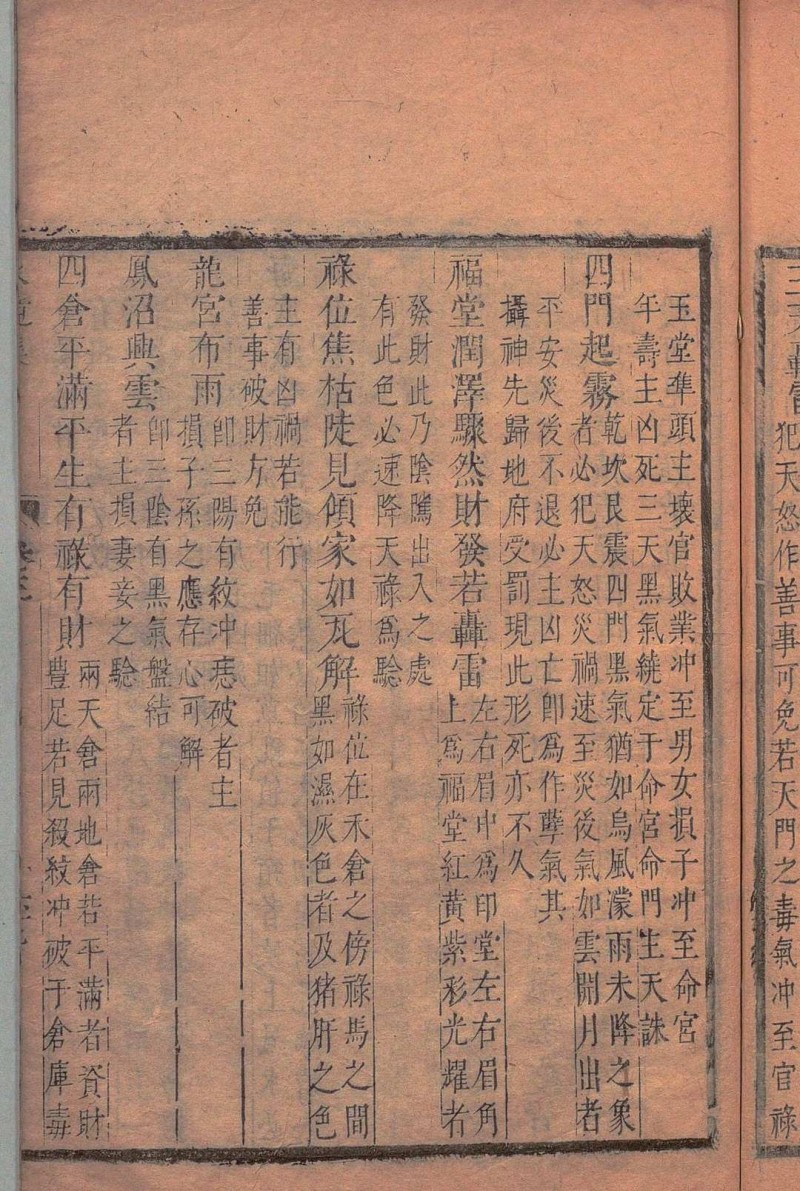 三天轟雷
犯天怒作善事可免若天門之毒氣冲至官祿
玉堂準頭主壞官敗業冲至男女損子冲至命宮
年壽主凶死三天黑氣繞定于命宮命門生天誅
四門起霧
乾坎艮震四門黑氣猶如烏風濛雨未降之象
者必犯天怒災禍速至災後氣如雲開月出者
平安災後不退必主凶亡卽爲作孽氣其
攝神先歸地府受罰現此形死亦不久
福堂潤澤驟然財發若轟雷
左右眉中爲印堂左右眉角
上爲福堂紅黃紫彩光耀者
發財此乃陰騭出入之處
有此色必速降天祿爲驗
祿位焦枯陡見傾家如瓦解
祿位在禾倉之傍祿馬之間
黑如濕灰色者及猪肝之色
主有凶禍若能行
善事破財方免
龍宮布雨
卽三陽有紋冲痣破者主
損子孫之應存心可解
鳳沼興雲
卽三陰有黑氣盤結
者主損妻妾之驗
四倉平滿平生有祿有財
兩天倉兩地倉若平滿者資財
豊足若見殺紋冲破于倉庫毒